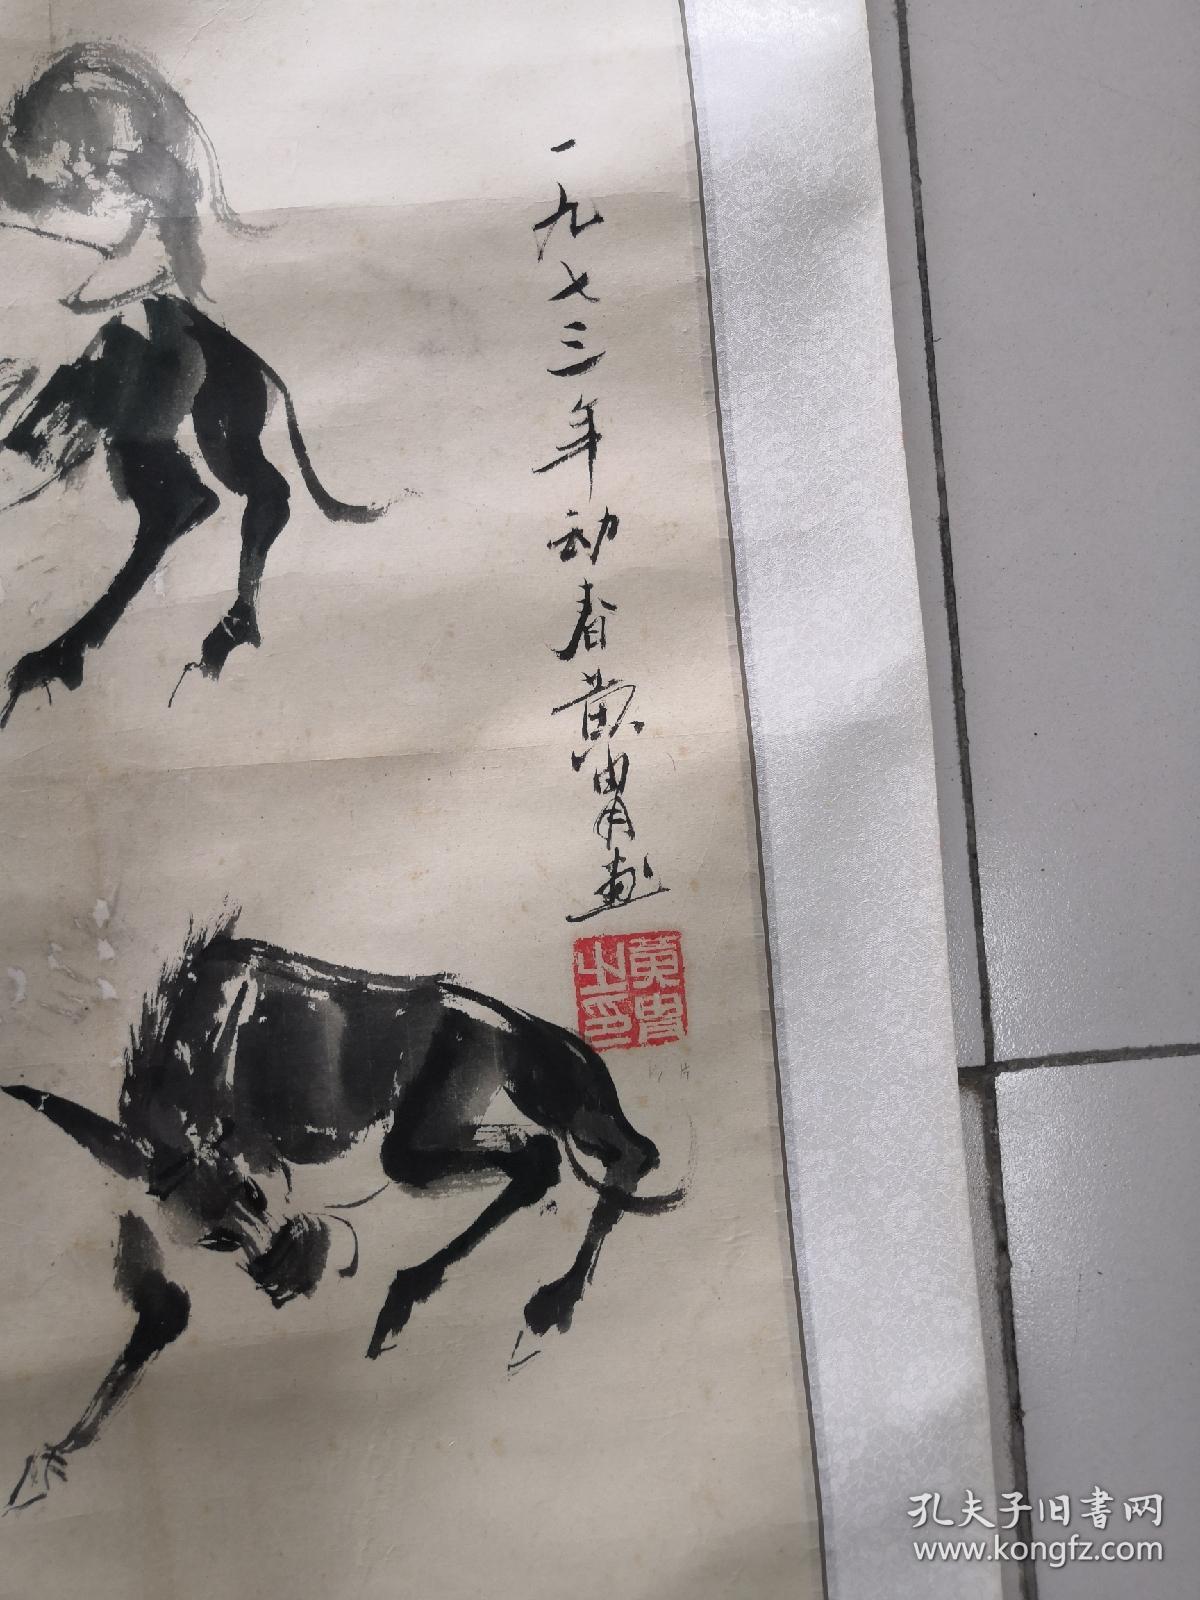 一九七三年动春黄胄画
黄胄
之印
孔夫子旧書网
www.kongfz.com